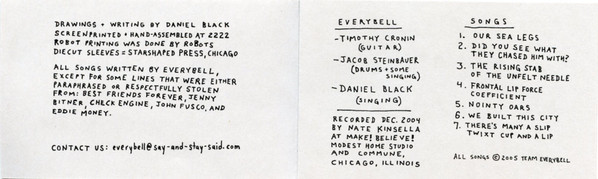 DRAWINGS + WRITING BY DANIEL BLACK
SCREENPRINTED + HAND-ASSEMBLED AT 2222
ROBOT PRINTING WAS DONE BY ROBOTS
DIECUT SLEEVES = STARSHAPED PRESS, CHICAGO
ALL SONGS WRITTEN BY EVERYBELL,
EXCEPT FOR SOME LINES THAT WERE EITHER
PARAPHRASED OR RESPECTFULLY STOLEN
FROM: BEST FRIENDS FOREVER, JENNY
BITNER, CHECK ENGINE, JOHN FUSCO, AND
EDDIE MONEY.
CONTACT US: everybell@say-and-stay-said.com
EVERYBELL
-TIMOTHY CRONIN
(GUITAR)
-JACOB STEINBAUER
(DRUMS + SOME
SINGING)
-DANIEL BLACK
(SINGING)
RECORDED DEC. 2004
BY NATE KINSELLA
AT MAKE! BELIEVE!
MODEST HOME STUDIO
AND COMMUNE,
CHICAGO, ILLINOIS
SONGS
1. OUR SEA LEGS
2. DID YOU SEE WHAT
THEY CHASED HIM WITH?
3. THE RISING STAB
OF THE UNFELT NEEDLE
4. FRONTAL LIP FORCE
COEFFICIENT
5. NOINTY OARS
6. WE BUILT THIS CITY
7. THERE'S MANY A SLIP
TWIXT CUP AND A LIP
ALL SONGS © 2005 TEAM EVERYBELL